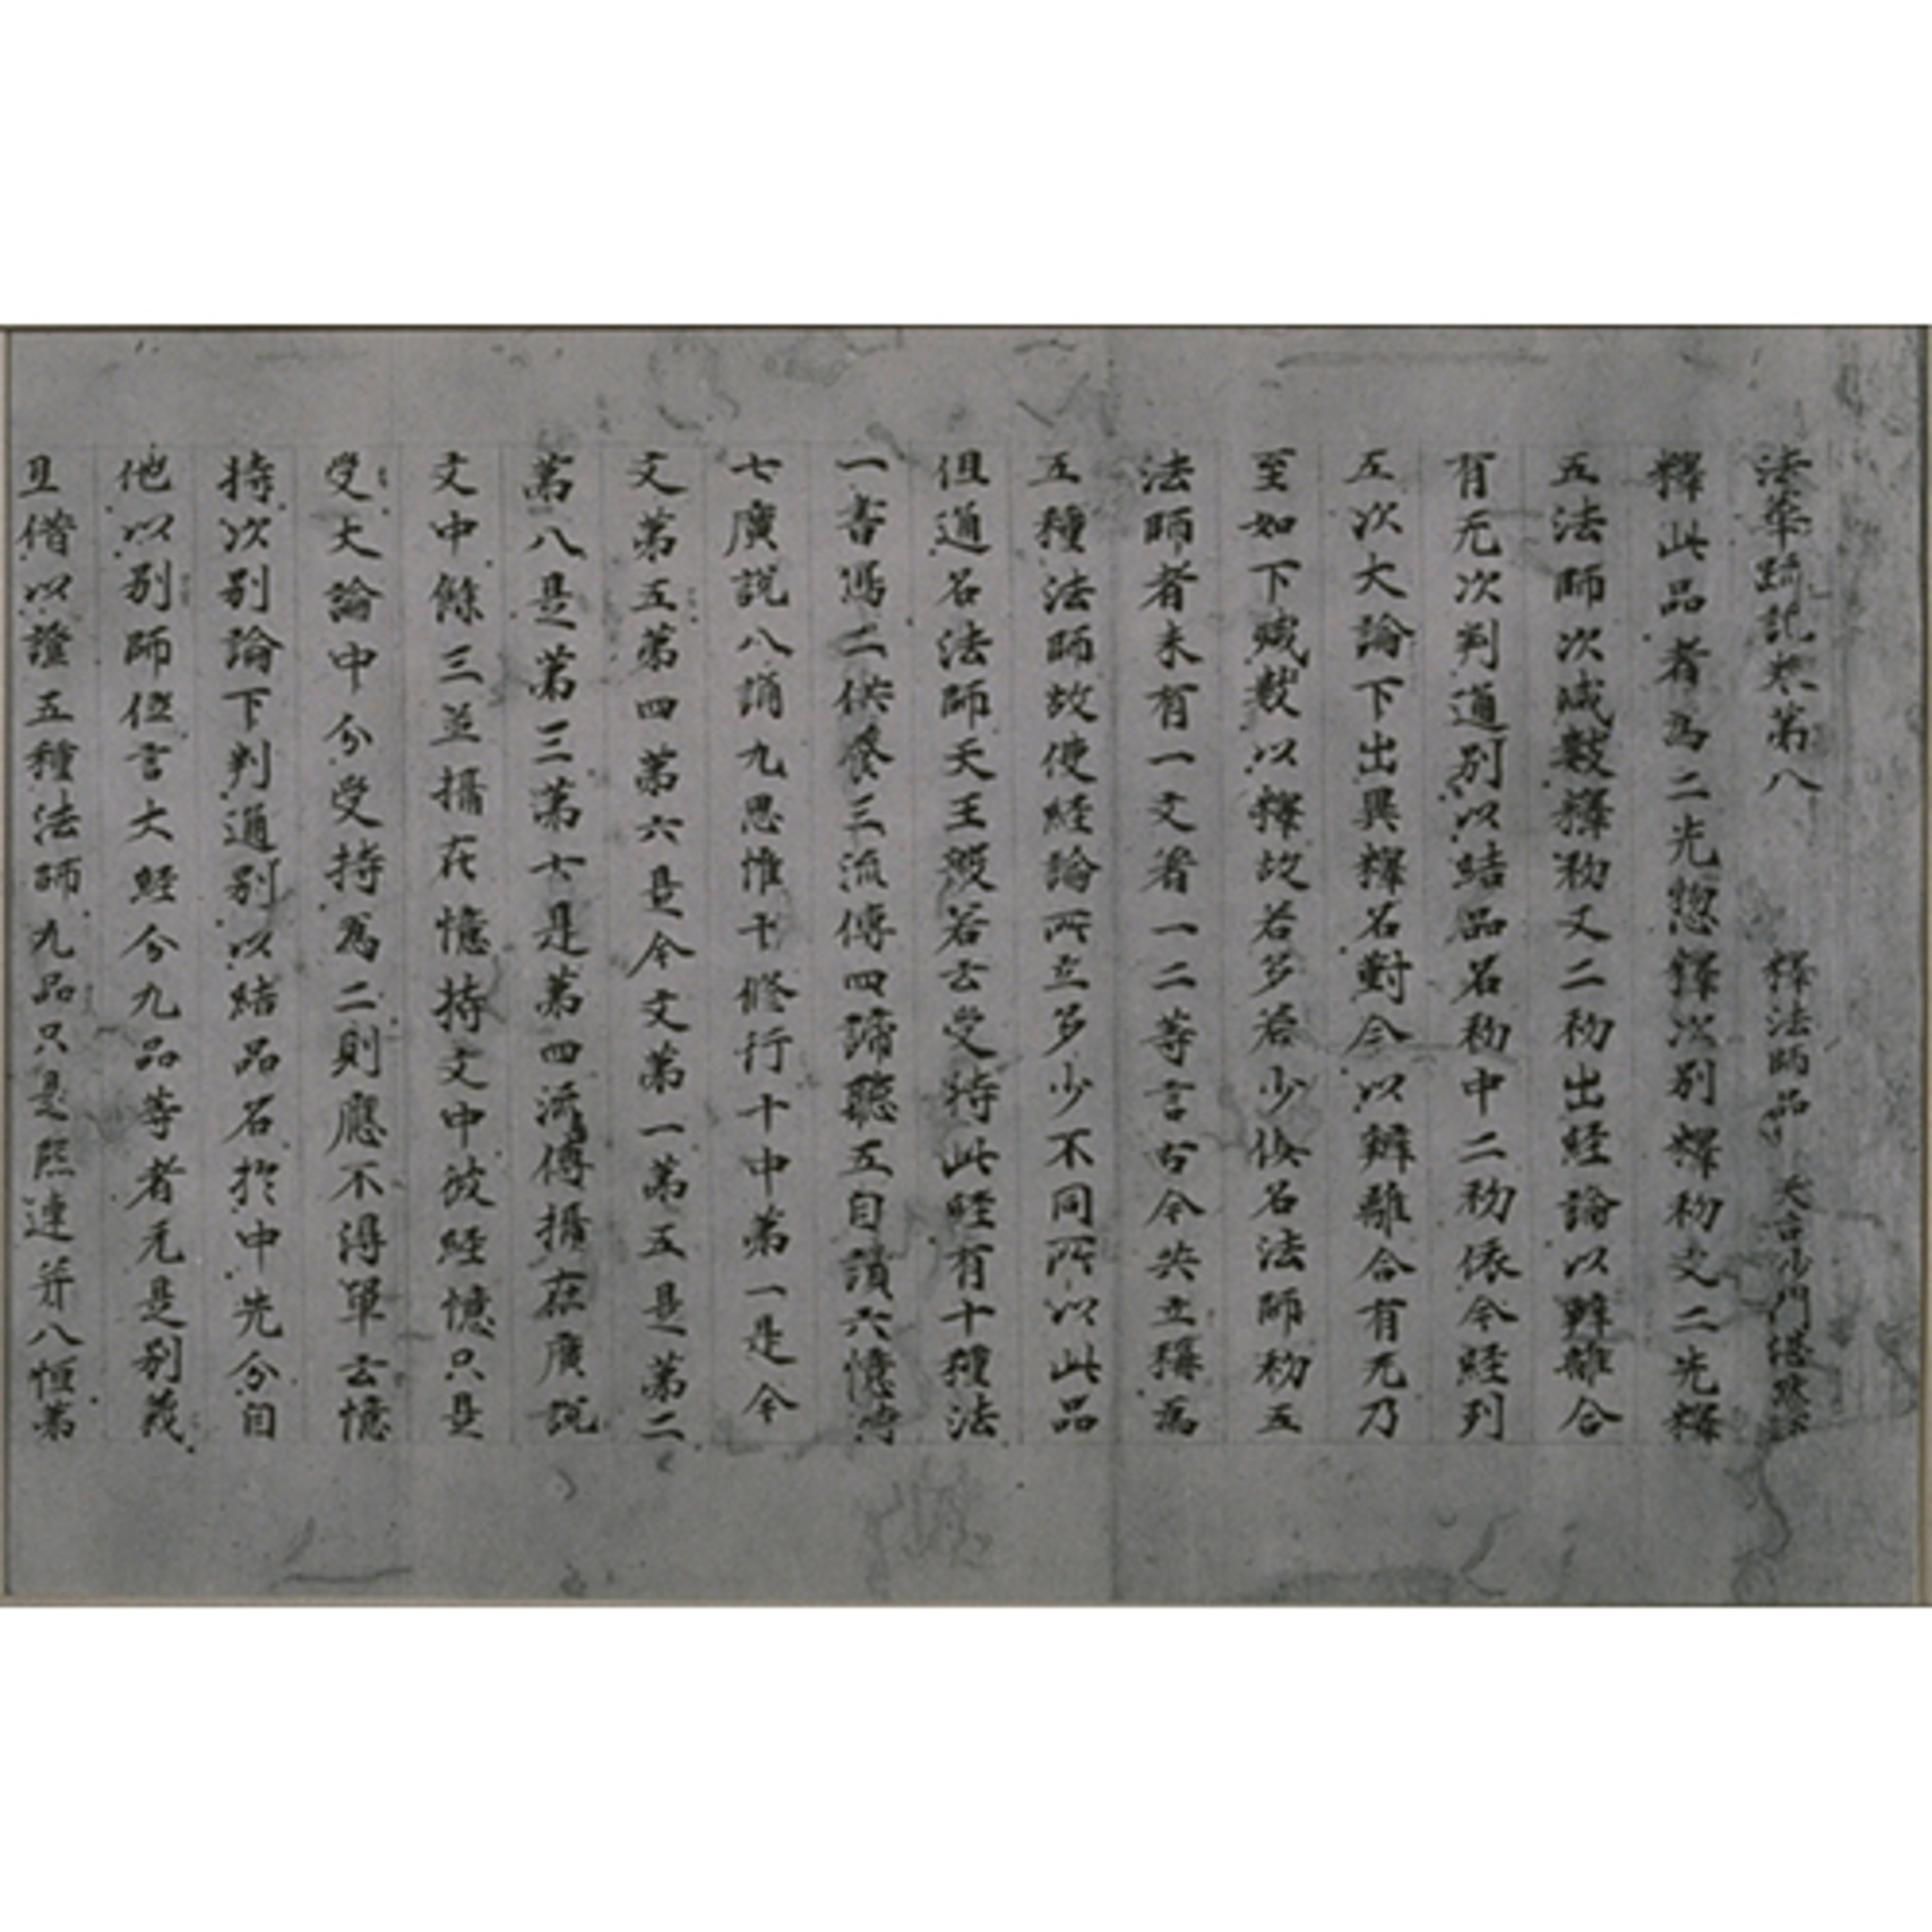 法華疏記卷第八 釋法師品 天台沙門湛然述
釋此品者為二先惣釋次別釋初文二先釋
五法師次減數釋初又二初出経論以辨離合
有无次判通別以結品名初中二初依今経列
五次大論下出異釋名對今以辨離合有无乃
至如下减數以釋故若多若少俱名法師初五
法師者未有一文着一二等言古今共立稱為
五種法師故使経論所立多少不同所以此品
但通名法師天王般若云受持此経有十種法
一書寫二供養三流傳四諦聽五自讀六憶持
七廣說八誦九思惟十修行十中第一是今
文第五第四第六是今文第一第五是第二
第八是第三第七是第四流傳攝在廣說
文中餘三並攝在憶持文中彼経憶只是
受大論中分受持為二則應不得單云憶
持次別論下判通別以結品名於中先分自
他以別師但言大経分九品等者元是別義
且借以證五種法師九品只是熈連并八恒第